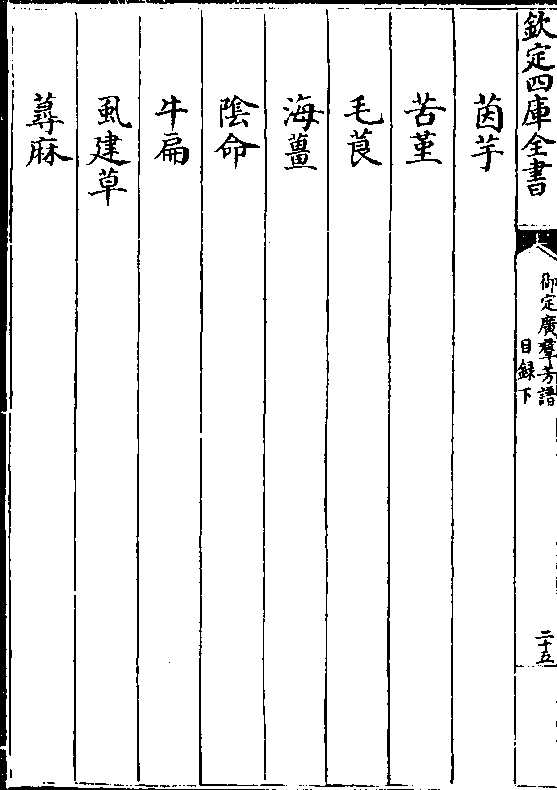 欽定四庫全書
御定廣羣芳譜
目錄下
二十五
茵芋
苦堇
毛茛
海薑
陰命
牛扁
虱建草
蕁麻